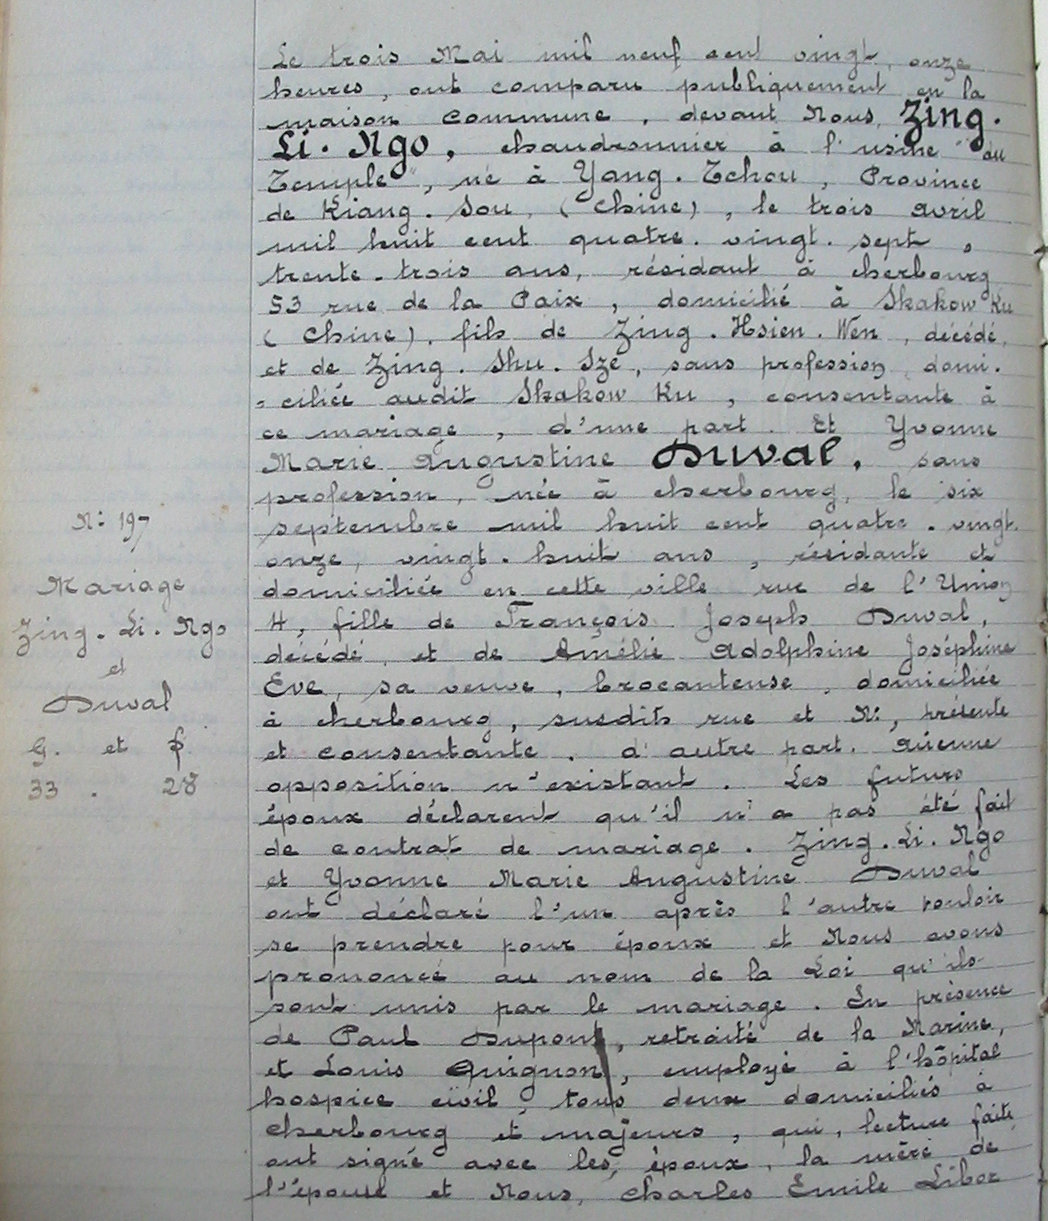 Le trois Mai mil neuf cent vingt, onze
heures, ont comparu publiquement en la
maison commune, devant Nous, Zing.
Li. Ngo, chaudronnier à l'usine "du
Temple", né à Yang. Tchou, Province
de Kiang. Sou, (Chine), le trois avril
mil huit cent quatre. vingt. sept,
trente. trois ans, résidant à Cherbourg
53 rue de la Paix, domicilié à Skakow Ku
(Chine), fils de Zing. Hsien. Wen, décédé,
et de Zing. Shu. Sze, sans profession, domi.
= ciliée audit Skakow Ku, consentante à
ce mariage, d'une part. Et Yvonne
Marie Augustine Duval, sans
profession, née à Cherbourg, le six
septembre mil huit cent quatre. vingt.
onze, vingt. huit ans, résidante et
domiciliée en cette ville rue de l'Union
4, fille de François Joseph Duval,
décédé, et de Amélie Adolphine Joséphine
Eve, sa veuve, brocanteuse, domiciliée
à Cherbourg, susdits rue et N°, présente
et consentante, d'autre part. Aucune
opposition n'existant. Les futurs
époux déclarent qu'il n'a pas été fait
de contrat de mariage. Zing. Li. Ngo
et Yvonne Marie Augustine Duval
ont déclaré l'un après l'autre vouloir
se prendre pour époux et Nous avons
prononcé au nom de la Loi qu'ils
sont unis par le mariage. En présence
de Paul Dupont, retraité de la Marine,
et Louis Quignon, employé à l'hôpital
hospice civil, tous deux domiciliés à
Cherbourg et majeurs, qui, lecture faite,
ont signé avec les époux, la mère de
l'épouse et Nous, Charles Emile Libor
N° 197
Mariage
Zing. Li. Ngo
et
Duval
G. et f
33 . 28